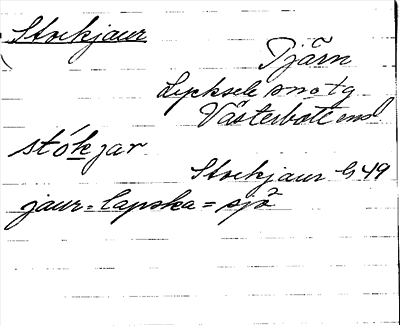 Stockjaur
Tjärn
Lycksele sn o tg
Västerbott
stókjar
Stockjaur G49
jaur = lapska = sjö